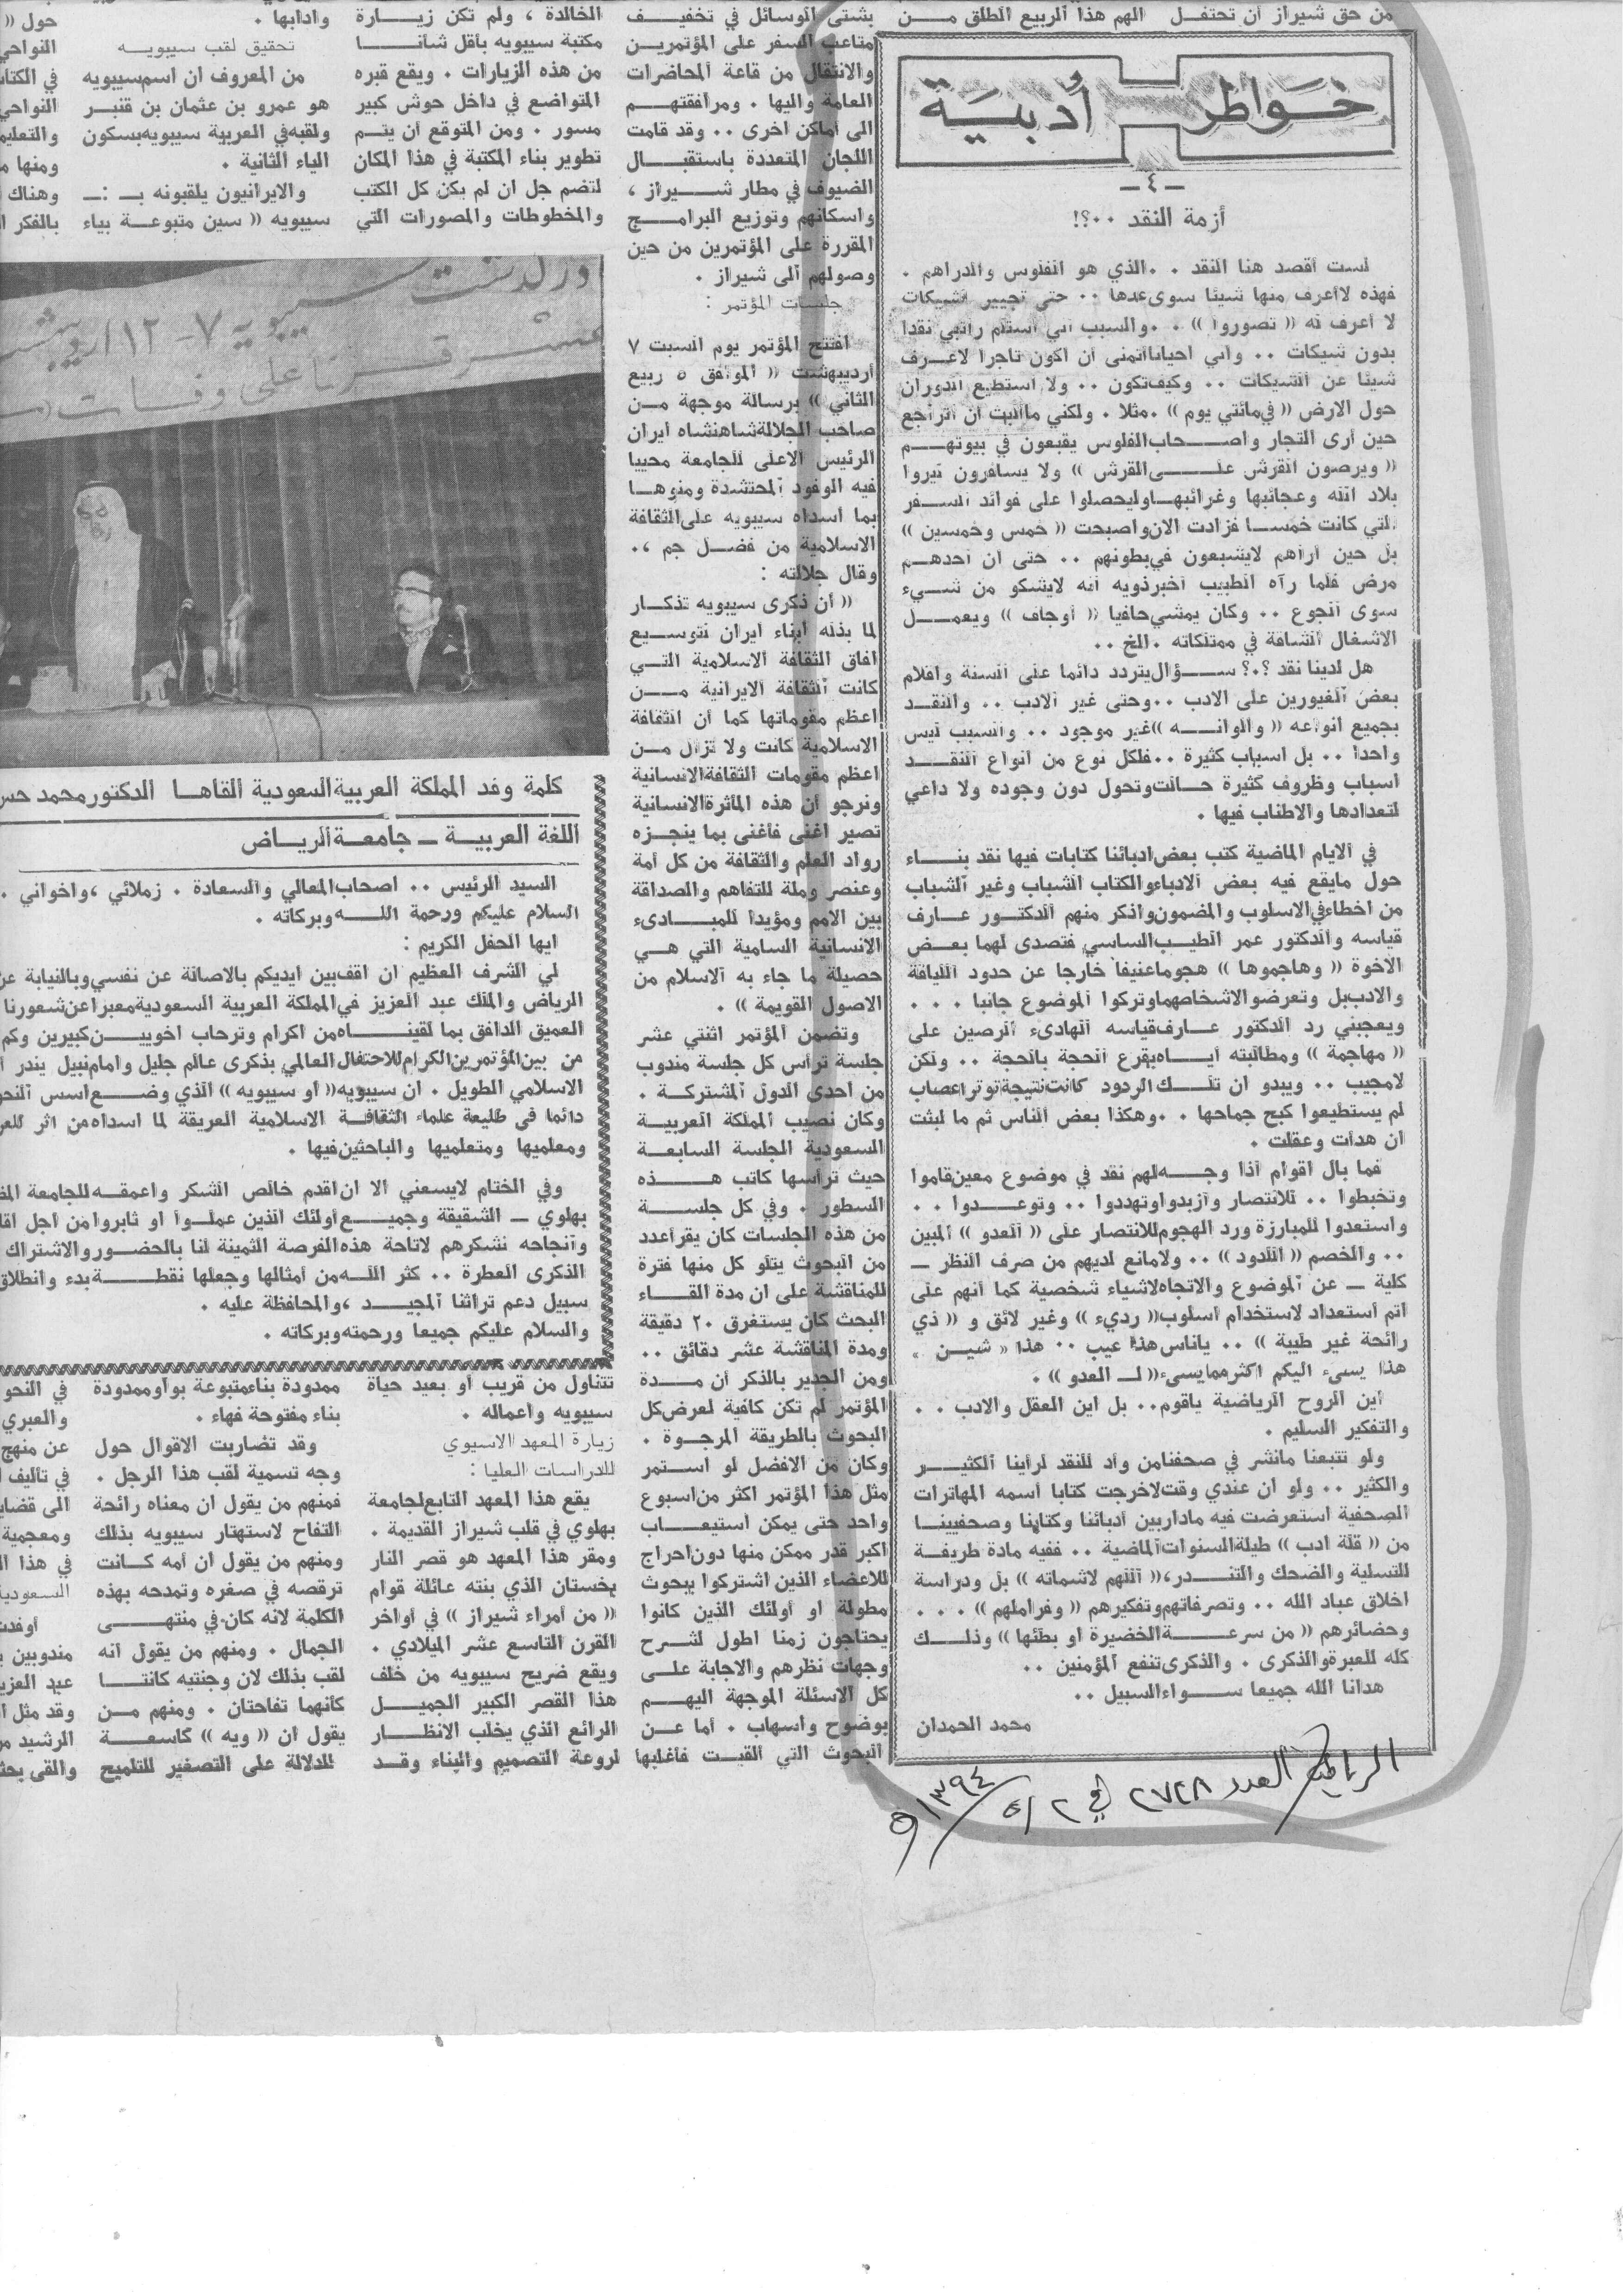 من حق شيراز أن تحتفل
الهم هذا الربيع الطلق من
خواطر أدبية
ـ ٤ ـ
أزمة النقد ٠٠؟!
لست أقصد هنا النقد ٠ ٠الذي هو الفلوس والدراهم ٠
فهذه لاأعرف منها شيئا سوى عدها ٠٠ حتى تجيير الشيكات
لا أعرف له (( تصوروا )) ٠ ٠والسبب اني استلم راتبي نقدا
بدون شيكات ٠٠ واني احيانا أتمنى أن اكون تاجرا لاعرف
شيئا عن الشيكات ٠٠ وكيف تكون ٠٠ ولا استطيع الدوران
حول الارض (( في مائتي يوم )) ٠مثلا ٠ ولكني ماالبث ان اتراجع
حين أرى التجار واصحاب الفلوس يقبعون في بيوتهم
(( ويرصون القرش على القرش )) ولا يسافرون ليروا
بلاد الله وعجائبها وغرائبها وليحصلوا على فوائد السفر
التي كانت خمسا فزادت الان واصبحت (( خمس وخمسين ))
بل حين أراهم لايشبعون في بطونهم ٠٠ حتى ان أحدهم
مرض فلما رآه الطبيب أخبر ذويه أنه لايشكو من شيء
سوى الجوع ٠٠ وكان يمشي حافيا (( أوجاف )) ويعمل
الاشغال الشاقة في ممتلكاته ٠الخ ٠٠
هل لدينا نقد ؟٠؟ سؤال يتردد دائما على السنة واقلام
بعض الغيورين على الادب ٠٠وحتى غير الادب ٠٠ والنقد
بجميع انواعه (( والوانه )) غير موجود ٠٠ والسبب ليس
واحدا ٠٠ بل اسباب كثيرة ٠٠فلكل نوع من انواع النقد
اسباب وظروف كثيرة حالت وتحول دون وجوده ولا داعي
لتعدادها والاطناب فيها ٠
في الايام الماضية كتب بعض ادبائنا كتابات فيها نقد بناء
حول مايقع فيه بعض الادباء والكتاب الشباب وغير الشباب
من اخطاء في الاسلوب والمضمون واذكر منهم الدكتور عارف
قياسه والدكتور عمر الطيب الساسي فتصدى لهما بعض
الاخوة (( وهاجموها )) هجوما عنيفا خارجا عن حدود اللياقة
والادب بل وتعرضو الاشخاصهما وتركوا الموضوع جانبا ٠ ٠ ٠
ويعجبني رد الدكتور عارف قياسه الهادىء الرصين على
(( مهاجمة )) ومطالبته أياه بقرع الحجة بالحجة ٠٠ ولكن
لامجيب ٠٠ ويبدو ان تلك الردود كانت نتيجة توتر اعصاب
لم يستطيعوا كبح جماحها ٠ ٠وهكذا بعض الناس ثم ما لبثت
ان هدأت وعقلت ٠
فما بال اقوام اذا وجه لهم نقد في موضوع معين قاموا
وتخبطوا ٠٠ للانتصار وأزبدوا وتهددوا ٠٠ وتوعدوا ٠ ٠
واستعدوا للمبارزة ورد الهجوم للانتصار على (( العدو )) المبين
٠٠ والخصم (( اللدود )) ٠٠ ولامانع لديهم من صرف النظر ـ
كلية ـ عن الموضوع والاتجاه لاشياء شخصية كما أنهم على
اتم أستعداد لاستخدام أسلوب (( رديء )) وغير لائق و (( ذي
رائحة غير طيبة )) ٠٠ ياناس هذا عيب ٠٠ هذا (( شين ))
هذا يسىء اليكم اكثر مما يسىء (( لـ العدو )) ٠
أين الروح الرياضية ياقوم٠٠ بل اين العقل والادب ٠ ٠
والتفكير السليم ٠
ولو تتبعنا مانشر في صحفنا من وأد للنقد لرأينا الكثير
والكثير ٠٠ ولو ان عندي وقت لاخرجت كتابا أسمه المهاترات
الصحفية استعرضت فيه مادار بين أدبائنا وكتابنا وصحفيينا
من (( قلة ادب )) طيلة السنوات الماضية ٠٠ ففيه مادة طريفة
للتسلية والضحك والتندر، (( اللهم لاشماته )) بل ودراسة
اخلاق عباد الله ٠٠ وتصرفاتهم وتفكيرهم (( وفراملهم )) ٠ ٠ ٠
وحضائرهم (( من سرعة الخضيرة او بطئها )) وذلك
كله للعبرة والذكرى ٠ والذكرى تنفع المؤمنين ٠٠
هدانا الله جميعا سواء السبيل ٠٠
محمد الحمدان
الرياض العدد ٢٧٢٨ في ٥/٢/ ١٣٩٤ هـ
بشتى الوسائل في تخفيف
متاعب السفر على المؤتمرين
والانتقال من قاعة المحاضرات
العامة واليها ٠ ومرافقتهم
الى أماكن اخرى ٠٠ وقد قامت
اللجان المتعددة باستقبال
الضيوف في مطار شيراز ،
واسكانهم وتوزيع البرامج
المقررة على المؤتمرين من حين
وصولهم الى شيراز ٠
جلسات المؤتمر :
افتتح المؤتمر يوم السبت ٧
أرديبهشت (( الموافق ٥ ربيع
الثاني )) برسالة موجهة من
صاحب الجلالة شاهنشاه ايران
الرئيس الاعلى للجامعة محييا
فيه الوفود المحتشدة ومنوها
بما أسداه سيبويه على الثقافة
الاسلامية من فضل جم ،٠
وقال جلالته :
(( أن ذكرى سيبويه تذكار
لما بذله أبناء ايران لتوسيع
افاق الثقافة الاسلامية التي
كانت الثقافة الايرانية من
اعظم مقوماتها كما أن الثقافة
الاسلامية كانت ولا تزال من
اعظم مقومات الثقافة الانسانية
ونرجو أن هذه المأثرة الانسانية
تصير اغنى فأغنى بما ينجزه
رواد العلم والثقافة من كل أمة
وعنصر وملة للتفاهم والصداقة
بين الامم ومؤيدا للمبادىء
الانسانية السامية التي هي
حصيلة ما جاء به الاسلام من
الاصول القويمة )) ٠
وتضمن المؤتمر اثنتي عشر
جلسة ترأس كل جلسة مندوب
من احدى الدول المشتركة ٠
وكان نصيب المملكة العربية
السعودية الجلسة السابعة
حيث ترأسها كاتب هذه
السطور ٠ وفي كل جلسة
من هذه الجلسات كان يقرأ عدد
من البحوث يتلو كل منها فترة
للمناقشة على ان مدة القاء
البحث كان يستغرق ٢٠ دقيقة
ومدة المناقشة عشر دقائق ٠٠
ومن الجدير بالذكر أن مدة
المؤتمر لم تكن كافية لعرض كل
البحوث بالطريقة المرجوة ٠
وكان من الافضل لو استمر
مثل هذا المؤتمر اكثر من اسبوع
واحد حتى يمكن أستيعاب
اكبر قدر ممكن منها دون احراج
للاعضاء الذين اشتركوا ببحوث
مطولة او أولئك الذين كانوا
يحتاجون زمنا اطول لشرح
وجهات نظرهم والاجابة على
كل الاسئلة الموجهة اليهم
بوضوح واسهاب ٠ أما عن
البحوث التي القيت فأغلبها
الخالدة ، ولم تكن زيارة
مكتبة سيبويه بأقل شأنا
من هذه الزيارات ٠ ويقع قبره
المتواضع في داخل حوش كبير
مسور ٠ ومن المتوقع أن يتم
تطوير بناء المكتبة في هذا المكان
لتضم جل ان لم يكن كل الكتب
والمخطوطات والمصورات التي
وادابها ٠
تحقيق لقب سيبويه
من المعروف ان اسم سيبويه
هو عمرو بن عثمان بن قنبر
ولقبه في العربية سيبويه بسكون
الياء الثانية ٠
والايرانيون يلقبونه بـ :ـ
سيبويه (( سين متبوعة بياء
حول ((
النواحي
في الكتاب
النواحي
والتعليم
ومنها
وهناك
بالفكر
سيبويه ٧-١٢ اردیبهشت
كلمة وفد المملكة العربية السعودية القاها الدكتور محمد حس
اللغة العربية ـ جامعة الرياض
السيد الرئيس ٠٠ اصحاب المعالي والسعادة ٠ زملائي ، واخواني ٠
السلام عليكم ورحمة الله وبركاته ٠
ايها الحفل الكريم :
لي الشرف العظيم ان اقف بين ايديكم بالاصالة عن نفسي وبالنيابة عن
الرياض والملك عبد العزيز في المملكة العربية السعودية معبرا عن شعورنا
العميق الدافق بما لقيناه من اكرام وترحاب اخويين كبيرين وكم
من بين المؤتمرين الكرام للاحتفال العالمي بذكرى عالم جليل وامام نبيل يندر
الاسلامي الطويل ٠ ان سيبويه (( أو سيبويه )) الذي وضع اسس النحو
دائما في طليعة علماء الثقافة الاسلامية العريقة لما اسداه من اثر للعر
ومعلميها ومتعلميها والباحثين فيها ٠
وفي الختام لايسعني الا ان اقدم خالص الشكر واعمقه للجامعة
بهلوي ـ الشقيقة وجميع أولئك الذين عملوا أو ثابروا من أجل اقا
وأنجاحه نشكرهم لاتاحة هذه الفرصة الثمينة لنا بالحضور والاشتراك
الذكرى العطرة ٠٠ كثر الله من أمثالها وجعلها نقطة بدء وانطلاق
سبيل دعم تراثنا المجيد ، والمحافظة عليه ٠
والسلام عليكم جميعا ورحمته وبركاته ٠
تتناول من قريب أو بعيد حياة
سيبويه واعماله ٠
زيارة المعهد الاسيوي
للدراسات العليا :
يقع هذا المعهد التابع لجامعة
بهلوي في قلب شيراز القديمة ٠
ومقر هذا المعهد هو قصر النار
يخستان الذي بنته عائلة قوام
(( من أمراء شيراز )) في أواخر
القرن التاسع عشر الميلادي ٠
ويقع ضريح سيبويه من خلف
هذا القصر الكبير الجميل
الرائع الذي يخلب الانظار
لروعة التصميم والبناء وقد
ممدودة بناء متبوعة بواو ممدودة
بناء مفتوحة فهاء ٠
وقد تضاربت الاقوال حول
وجه تسمية لقب هذا الرجل ٠
فمنهم من يقول ان معناه رائحة
التفاح لاستهتار سيبويه بذلك
ومنهم من يقول ان أمه كانت
ترقصه في صغره وتمدحه بهذه
الكلمة لانه كان في منتهى
الجمال ٠ ومنهم من يقول أنه
لقب بذلك لان وجنتيه كانتا
كأنهما تفاحتان ٠ ومنهم من
يقول ان (( ويه )) كاسعة
للدلالة على التصغير للتلميح
في النحو
والعبري
عن منهج
في تأليف
الى قضايا
ومعجمية
في هذا
السعودية
أوفدت
مندوبين
عبد العزيز
وقد مثل
الرشيد
والقى بحث